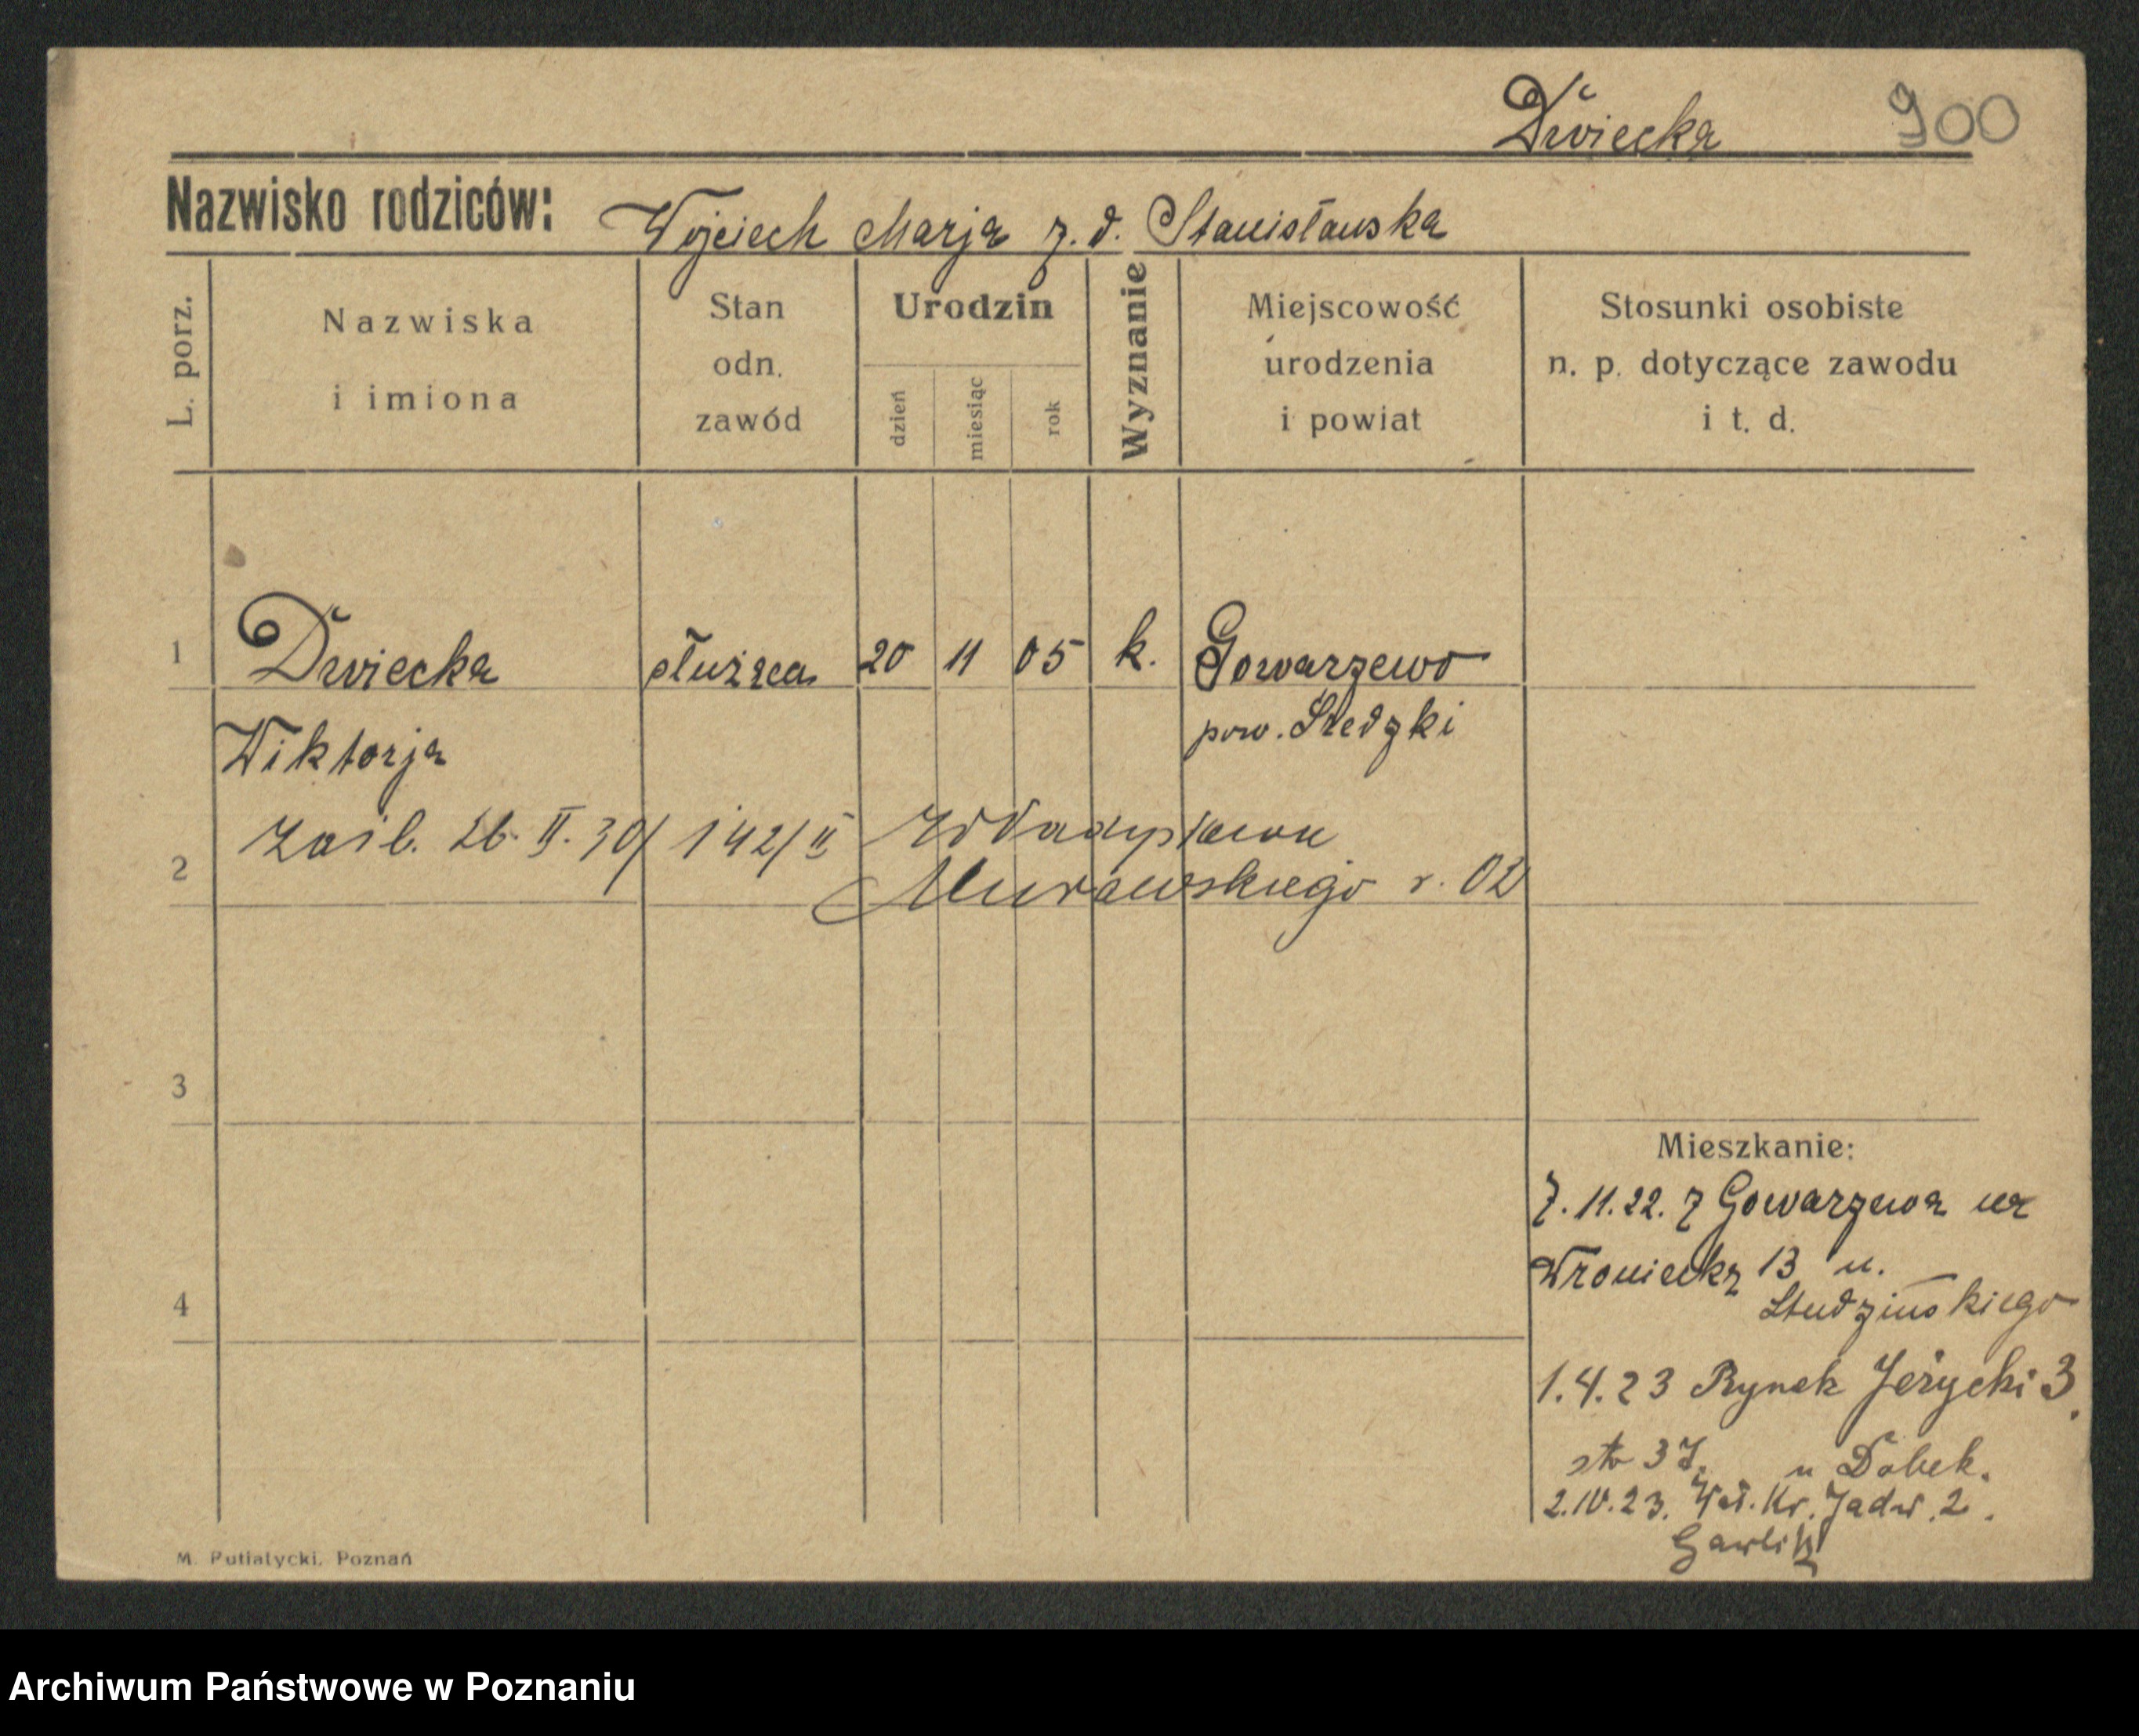 Dźwiecka 900
Nazwisko rodziców: Wojciech Marja z. d. Stanisławska
L. porz.
Nazwiska
i imiona
Stan
odn.
zawód
Urodzin
dzień
miesiąc
rok
Wyznanie
Miejscowość
urodzenia
i powiat
Stosunki osobiste
n. p. dotyczące zawodu
i t. d.
1 służąca 20 11 05 k. Gowarzewo
Wiktorja pow. Średzki
26. II. 30/ 142/II
2 Murawskiego r. 02
3
4
Mieszkanie:
7.11.22. z Gowarzewa na
Wroniecką 13 u.
Studzińskiego
1.4.23 Rynek Jeżycki 3.
str 37. u Dobek.
2.IV.23. Wał. Kr. Jadw. 2.
M. Putiatycki, Poznań
Archiwum Państwowe w Poznaniu